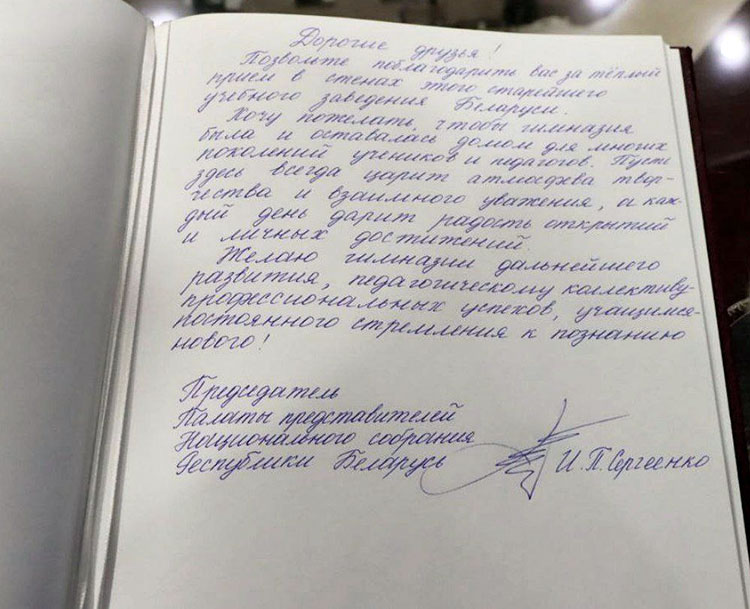 Дорогие друзья!
Позвольте поблагодарить вас за тёплый
приём в стенах этого старейшего
учебного заведения Беларуси.
Хочу пожелать, чтобы гимназия
была и оставалась домом для многих
поколений учеников и педагогов. Пусть
здесь всегда царит атмосфера твор-
чества и взаимного уважения, а каж-
дый день дарит радость открытий
и личных достижений.
Желаю гимназии дальнейшего
развития, педагогическому коллективу-
профессиональных успехов, учащимся-
постоянного стремления к познанию
нового!
Председатель
Палаты представителей
Национального собрания
Республики Беларусь
И. П. Сергеенко